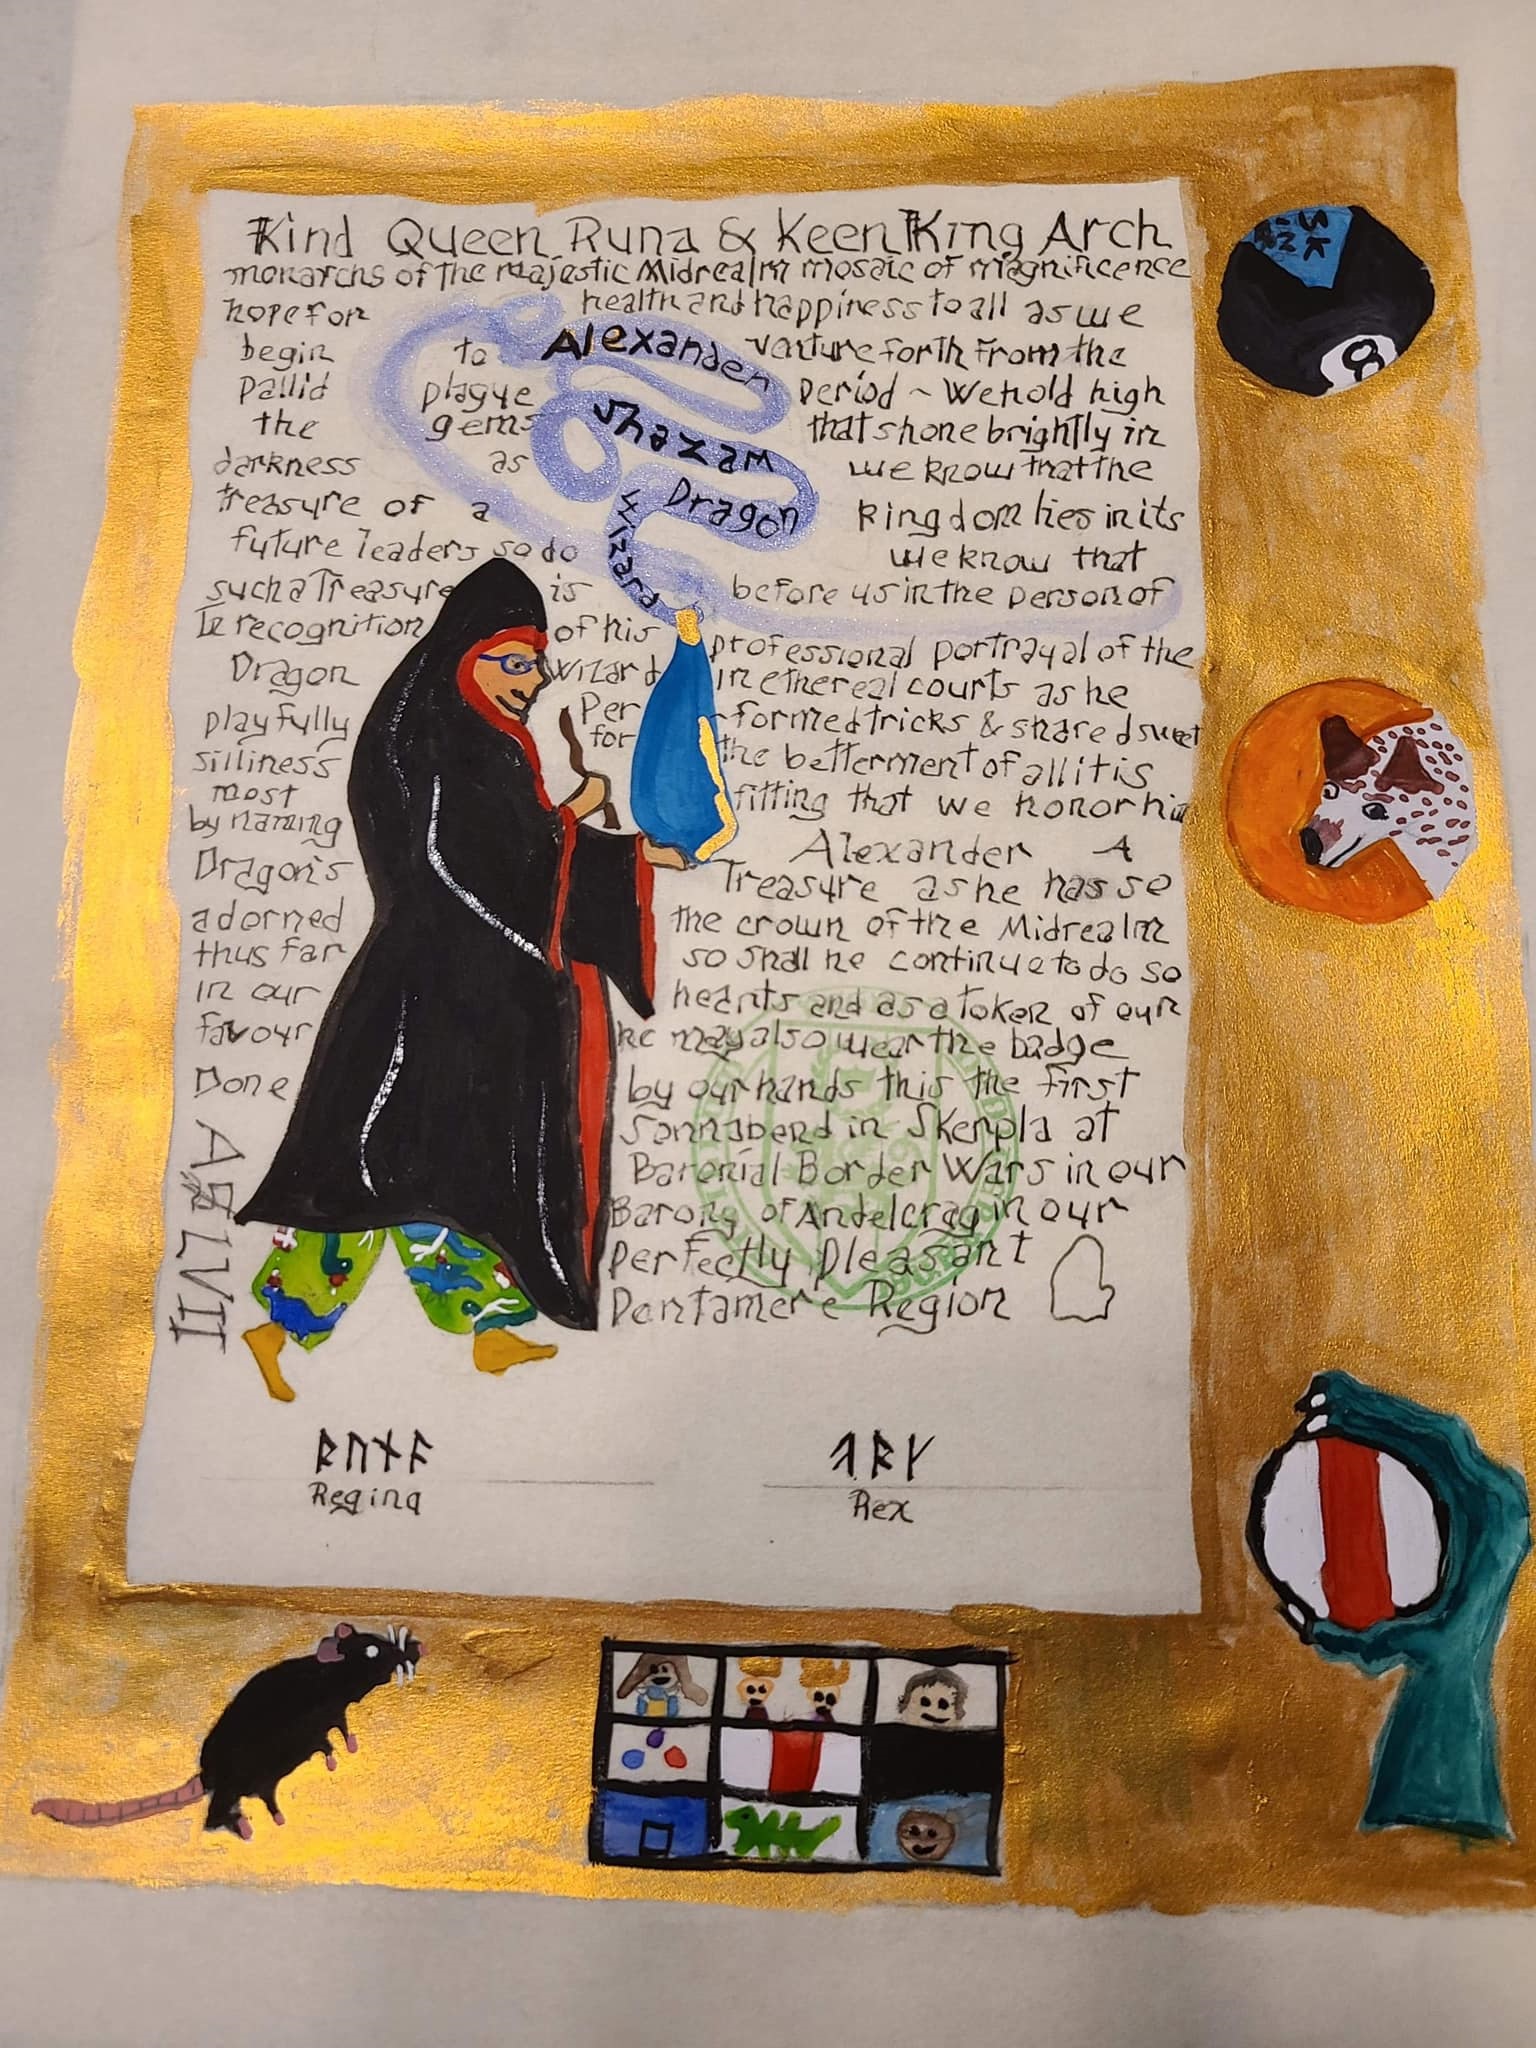 Kind Queen Runa & Keen King Arch
monarchs of the majestic Midrealm mosaic of magnificence
hope for health and happiness to all as we
begin to venture forth from the
pallid plague period ~ We hold high
the gems that shone brightly in
darkness as we know that the
treasure of a kingdom lies in its
future leaders so do we know that
such a Treasure is before us in the person of
Alexander
Shazam
Dragon
Wizard
In recognition of his professional portrayal of the
Dragon Wizard in ethereal courts as he
playfully Per-formed tricks & shared sweet
silliness for the betterment of all it is
most fitting that we honor him
by naming Alexander A
Dragon's Treasure as he has so
adorned the crown of the Midrealm
thus far so shall he continue to do so
in our hearts and as a token of our
favour he may also wear the badge
Done by our hands this the first
Sonnabend in Skerpla at
Baronial Border Wars in our
Barony of Andelcrag in our
perfectly pleasant
Pentamere Region
AS LVII
ᚱᚢᚾᚨ
Regina
ᛆᚱᚴ
Rex
8